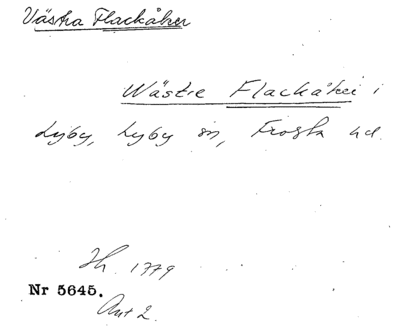 Västra Flackåker
Wästre Flackåker i
Lyby, Lyby sn, Frosta hd.
Jh. 1779
Nr 5645.
Ant 2.